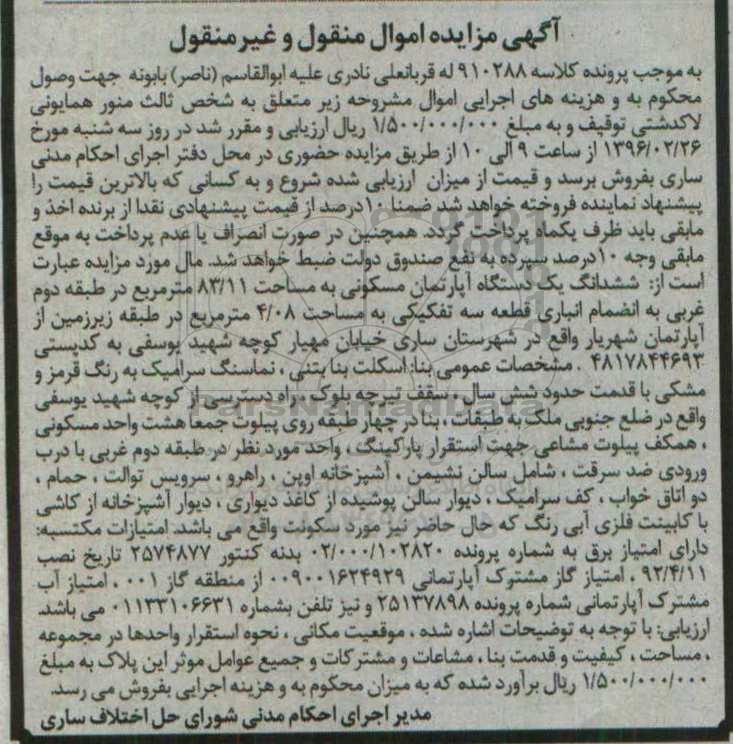 آگهی مزایده اموال منقول و غیرمنقول
به موجب پرونده کلاسه ۹۱۰۲۸۸ له قربانعلی نادری علیه ابوالقاسم (ناصر) بابونه جهت وصول
محکوم به و هزینه های اجرایی اموال مشروحه زیر متعلق به شخص ثالث منور همایونی
لاکدشتی توقیف و به مبلغ ۱/۵۰۰/۰۰۰/۰۰۰ ریال ارزیابی و مقرر شد در روز سه شنبه مورخ
۱۳۹۶/۰۲/۲۶ از ساعت ۹ الی ۱۰ از طریق مزایده حضوری در محل دفتر اجرای احکام مدنی
ساری بفروش برسد و قیمت از میزان ارزیابی شده شروع و به کسانی که بالاترین قیمت را
پیشنهاد نماینده فروخته خواهد شد ضمنا ۱۰درصد از قیمت پیشنهادی نقدا از برنده اخذ و
مابقی باید ظرف یکماه پرداخت گردد. همچنین در صورت انصراف یا عدم پرداخت به موقع
مابقی وجه ۱۰درصد سپرده به نفع صندوق دولت ضبط خواهد شد. مال مورد مزایده عبارت
است از: ششدانگ یک دستگاه آپارتمان مسکونی به مساحت ۸۳/۱۱ مترمربع در طبقه دوم
غربی به انضمام انباری قطعه سه تفکیکی به مساحت ۴/۰۸ مترمربع در طبقه زیرزمین از
آپارتمان شهریار واقع در شهرستان ساری خیابان مهیار کوچه شهید یوسفی به کدپستی
۴۸۱۷۸۴۴۶۹۳ . مشخصات عمومی بنا: اسکلت بنا بتنی ، نماسنگ سرامیک به رنگ قرمز و
مشکی با قدمت حدود شش سال ، سقف تیرچه بلوک ، راه دسترسی از کوچه شهید یوسفی
واقع در ضلع جنوبی ملک به طبقات ، بنا در چهار طبقه روی پیلوت جمعا هشت واحد مسکونی
، همکف پیلوت مشاعی جهت استقرار پارکینگ ، واحد مورد نظر در طبقه دوم غربی با درب
ورودی ضد سرقت ، شامل سالن نشیمن ، آشپزخانه اوپن ، راهرو ، سرویس توالت ، حمام ،
دو اتاق خواب ، کف سرامیک ، دیوار سالن پوشیده از کاغذ دیواری ، دیوار آشپزخانه از کاشی
با کابینت فلزی آبی رنگ که حال حاضر نیز مورد سکونت واقع می باشد. امتیازات مکتسبه:
دارای امتیاز برق به شماره پرونده ۰۲/۰۰۰/۱۰۲۸۲۰ بدنه کنتور ۲۵۷۴۸۷۷ تاریخ نصب
۹۲/۴/۱۱ ، امتیاز گاز مشترک آپارتمانی ۰۰۹۰۰۱۶۲۴۹۲۹ از منطقه گاز ۰۰۱ ، امتیاز آب
مشترک آپارتمانی شماره پرونده ۲۵۱۳۷۸۹۸ و نیز تلفن بشماره ۰۱۱۳۳۱۰۶۶۳۱ می باشد.
ارزیابی: با توجه به توضیحات اشاره شده ، موقعیت مکانی ، نحوه استقرار واحدها در مجموعه
، مساحت ، کیفیت و قدمت بنا ، مشاعات و مشترکات و جمیع عوامل موثر این پلاک به مبلغ
۱/۵۰۰/۰۰۰/۰۰۰ ریال برآورد شده که به میزان محکوم به و هزینه اجرایی بفروش می رسد.
مدیر اجرای احکام مدنی شورای حل اختلاف ساری
ParsNamadData